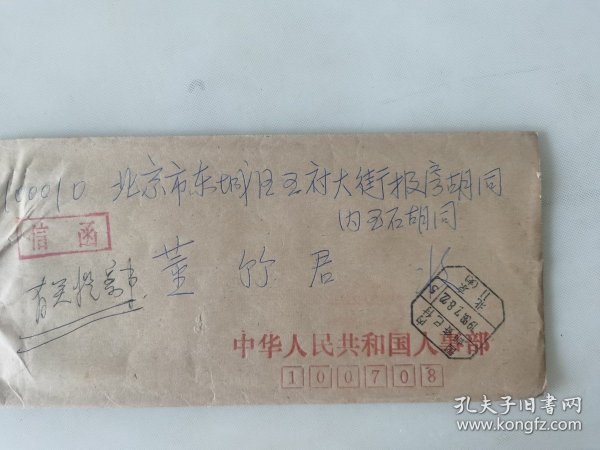 100010 北京市东城区王府大街报房胡同
内玉石胡同
信函
董竹君 收
有关提案事
中华人民共和国人事部
100708
孔夫子旧书网
www.kongfz.com